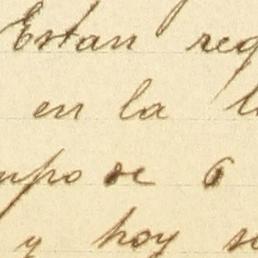 Estan reg
en la l
mpo de 6
y hoy se